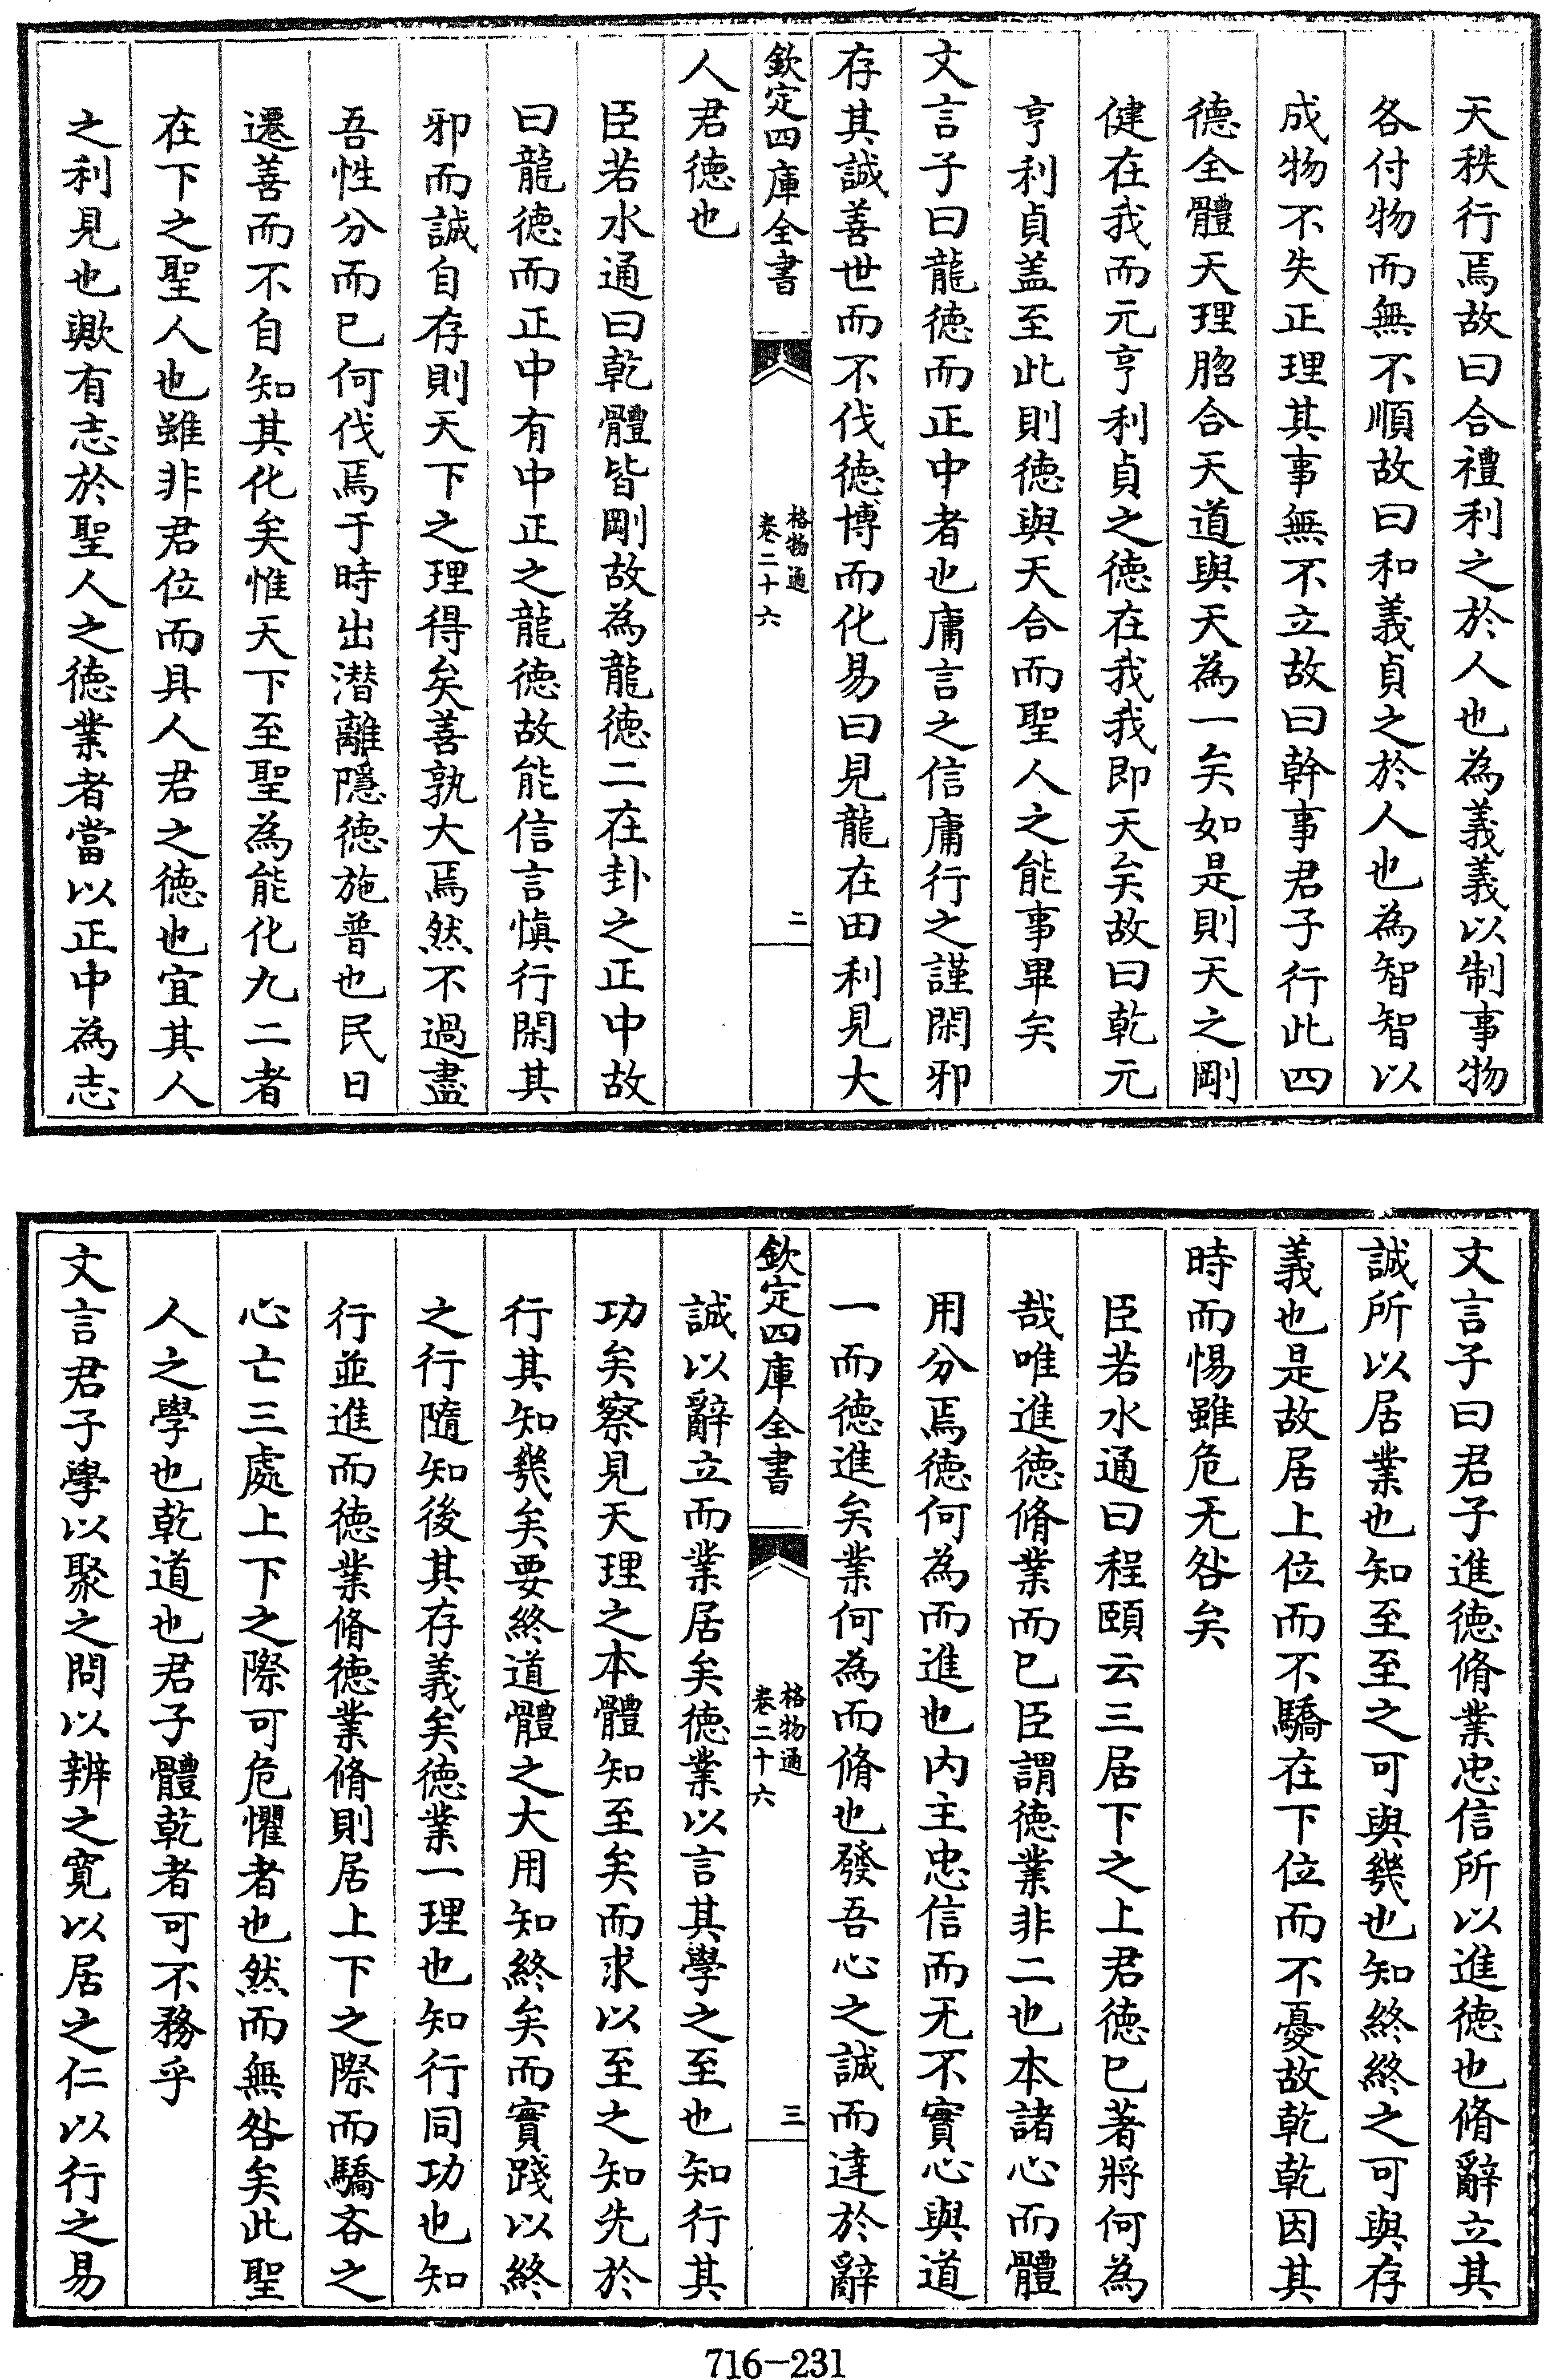 天秩行焉故曰合禮利之於人也為義義以制事物
各付物而無不順故曰和義貞之於人也為智智以
成物不失正理其事無不立故曰幹事君子行此四
德全體天理脗合天道與天為一矣如是則天之剛
健在我而元亨利貞之徳在我我即天矣故曰乾元
亨利貞盖至此則徳與天合而聖人之能事畢矣
文言子曰龍徳而正中者也庸言之信庸行之謹閑邪
存其誠善世而不伐徳博而化易曰見龍在田利見大
欽定四庫全書
格物通
卷二十六
二
人君徳也
臣若水通曰乾體皆剛故為龍徳二在卦之正中故
曰龍徳而正中有中正之龍徳故能信言愼行閑其
邪而誠自存則天下之理得矣善孰大焉然不過盡
吾性分而已何伐焉于時出潜離隱徳施普也民日
遷善而不自知其化矣惟天下至聖為能化九二者
在下之聖人也雖非君位而具人君之徳也宜其人
之利見也歟有志於聖人之徳業者當以正中為志
文言子曰君子進徳脩業忠信所以進徳也脩辭立其
誠所以居業也知至至之可與幾也知終終之可與存
義也是故居上位而不驕在下位而不憂故乾乾因其
時而惕雖危无咎矣
臣若水通曰程頤云三居下之上君徳已著將何為
哉唯進徳脩業而已臣謂徳業非二也本諸心而體
用分焉徳何為而進也内主忠信而无不實心與道
一而徳進矣業何為而脩也發吾心之誠而達於辭
欽定四庫全書
格物通
卷二十六
三
誠以辭立而業居矣徳業以言其學之至也知行其
功矣察見天理之本體知至矣而求以至之知先於
行其知幾矣要終道體之大用知終矣而實踐以終
之行隨知後其存義矣徳業一理也知行同功也知
行並進而徳業脩徳業脩則居上下之際而驕吝之
心亡三處上下之際可危懼者也然而無咎矣此聖
人之學也乾道也君子體乾者可不務乎
文言君子學以聚之問以辨之寛以居之仁以行之易
716-231